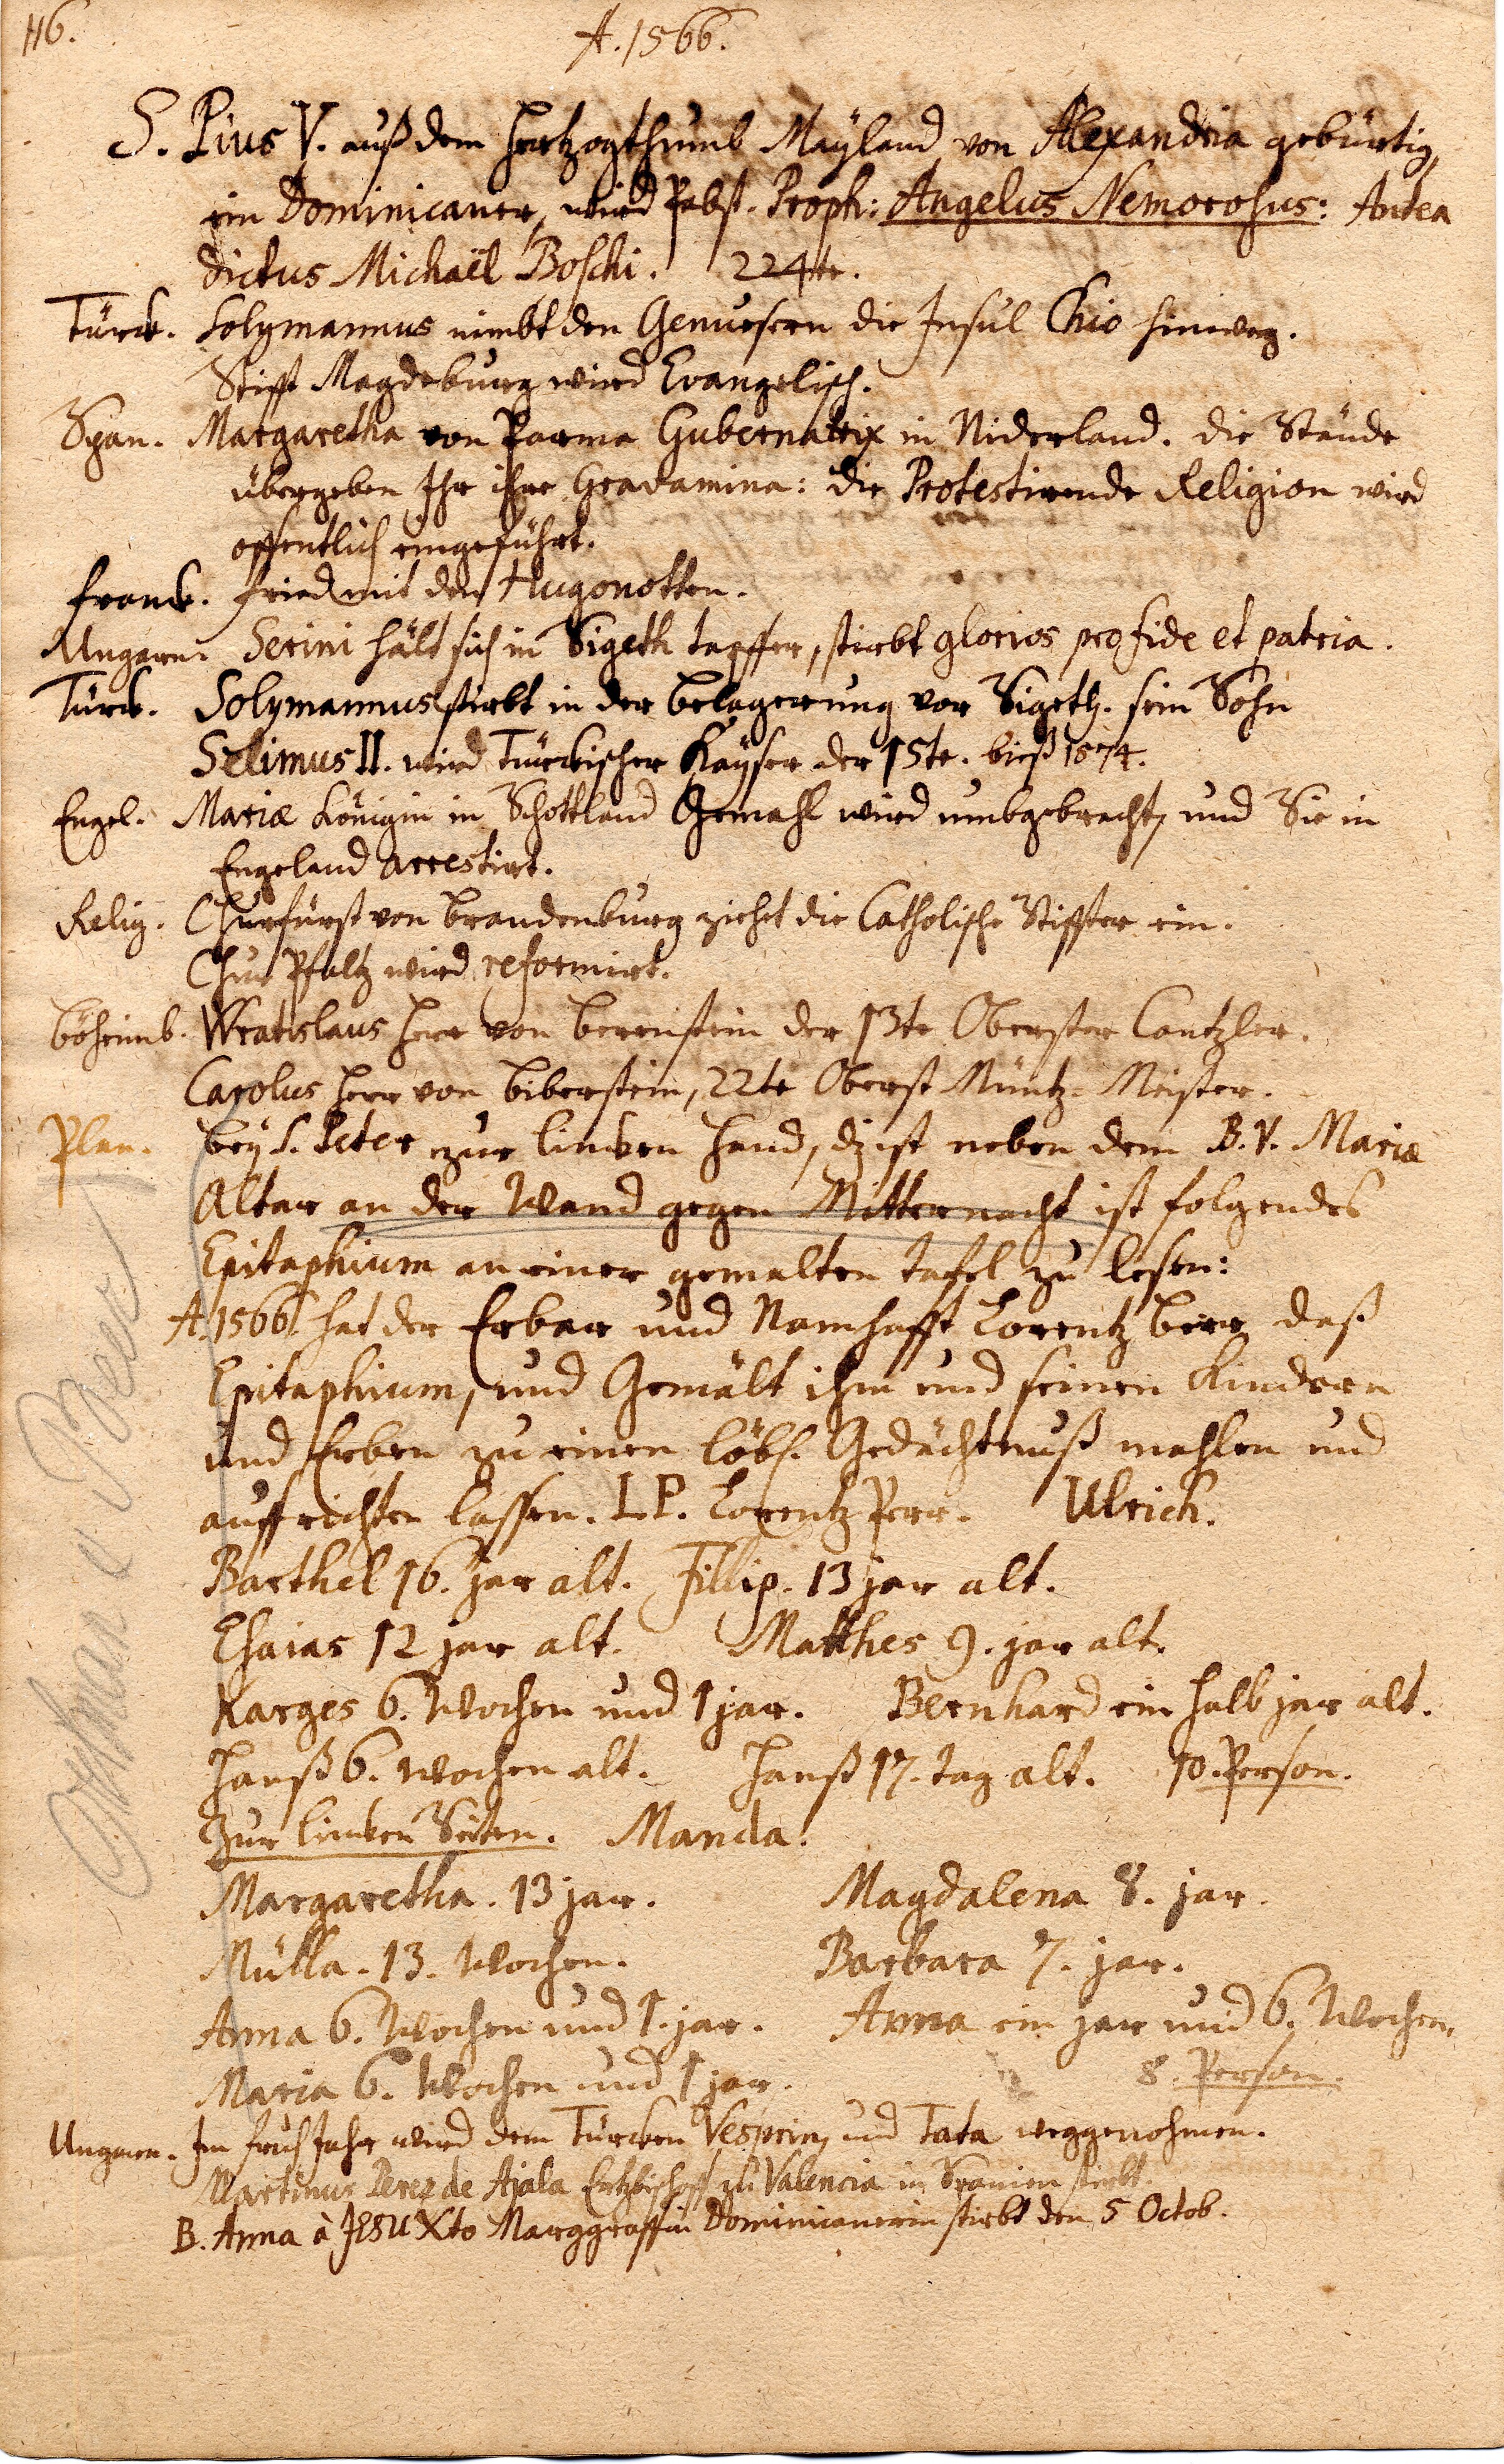 116.
A. 1566.
S. Pius V. auß dem Hertzogthumb Mayland von Alexandria gebürtig,
ein Dominicaner, wird Pabst. Proph: Angelus Nemorosus: Antea
dictus Michaël Boschi. 224te.
Türck. Solymannus nimbt den Genuesern die Insul Chio hinweg.
Stifft Magdeburg wird Evangelisch.
Span. Margaretha von Parma Gubernatrix in Niderland. die Stände
übergeben Ihr ihre Gravamina: die Protestirende Religion wird
offentlich eingeführt.
Franck. Fried mit den Hugonotten.
Ungarn. Serini hält sich in Sigeth tapffer, stirbt glorios pro fide et patria.
Türck. Solymannus stirbt in der Belagerung vor Sigeth. sein Sohn
Selimus II. wird Türckischer Kayser der 15te. bieß 1574.
Engel. Mariæ Königin in Schottland Gemahl wird umbgebracht, und Sie in
Engeland arrestirt.
Relig. Churfürst von Brandenburg ziehet die Catholische Stiffter ein.
Chur Pfaltz wird reformirt.
Böheimb. Wratislaus Herr von Berenstein der 13te Oberster Cantzler.
Carolus Herr von Biberstein, 22te Oberst Müntz-Meister.
Plan. bey S. Peter zur lincken Hand, dz ist neben dem B. V. Mariæ
Altar an der Wand gegen Mitternacht ist folgendes
Epitaphium an einer gemalten Tafel zu lesen:
A. 1566. hat der Erbar und Namhafft Lorentz Berr daß
Epitaphium, und Gemält ihm und seinen Kindern
und Erben zu einen löbl. Gedächtnuß mahlen und
auffrichten lassen. L. P. Lorentz Perr. Ulrich.
Barthel 16. jar alt. Fillip. 13 jar alt.
Esaias 12 jar alt. Matthes 9. jar alt.
Karges 6. Wochen und 1 jar. Bernhard ein halb jar alt.
Hanß 6. Wochen alt. Hanß 17. tag alt. 10. Person.
Zur lincken Seiten. Manda.
Margaretha. 13 jar. Magdalena 8. jar.
Mülla. 13. Wochen. Barbara 7. jar.
Anna 6. Wochen und 1. jar. Anna ein jar und 6. Wochen.
Maria 6. Wochen und 1 jar. 8. Person.
Ungarn. Im Früh Jahr wird dem Türcken Vesprin, und Tata weggenohmen.
Martinus Perez de Ajala Ertzbischoff zu Valencia in Spanien stirbt.
B. Anna à JESU Xto Marggraffin Dominicanerin stirbt den 5 Octob.